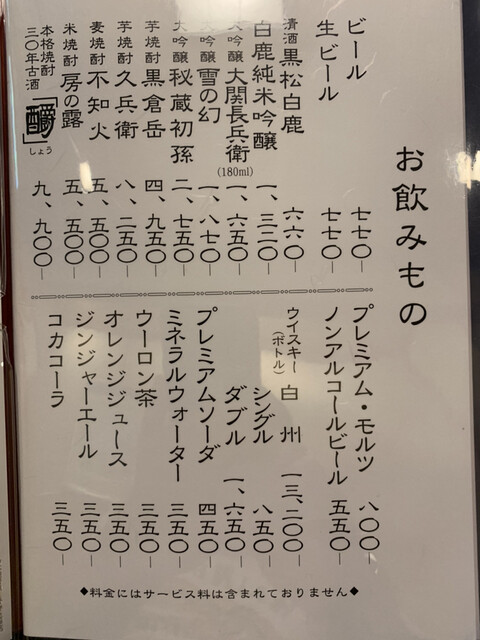 お飲みもの
ビール 七七〇―
生ビール 七七〇―
清酒 黒松白鹿 六六〇―
白鹿純米吟醸 一、三二〇―
大吟醸 大関長兵衛 (180ml) 一、六五〇―
大吟醸 雪の幻 一、八七〇―
大吟醸 秘蔵初孫 二、七五〇―
芋焼酎 黒倉岳 四、九五〇―
芋焼酎 久兵衛 八、二五〇―
麦焼酎 不知火 五、五〇〇―
米焼酎 房の露 五、五〇〇―
本格焼酎 三〇年古酒 「釂」 しょう 九、九〇〇―
プレミアム・モルツ 八〇〇―
ノンアルコールビール 五五〇―
ウイスキー (ボトル) 白州 一三、二〇〇―
シングル 八五〇―
ダブル 一、六五〇―
プレミアムソーダ 四五〇―
ミネラルウォーター 三五〇―
ウーロン茶 三五〇―
オレンジジュース 三五〇―
ジンジャーエール 三五〇―
コカコーラ 三五〇―
◆料金にはサービス料は含まれておりません◆